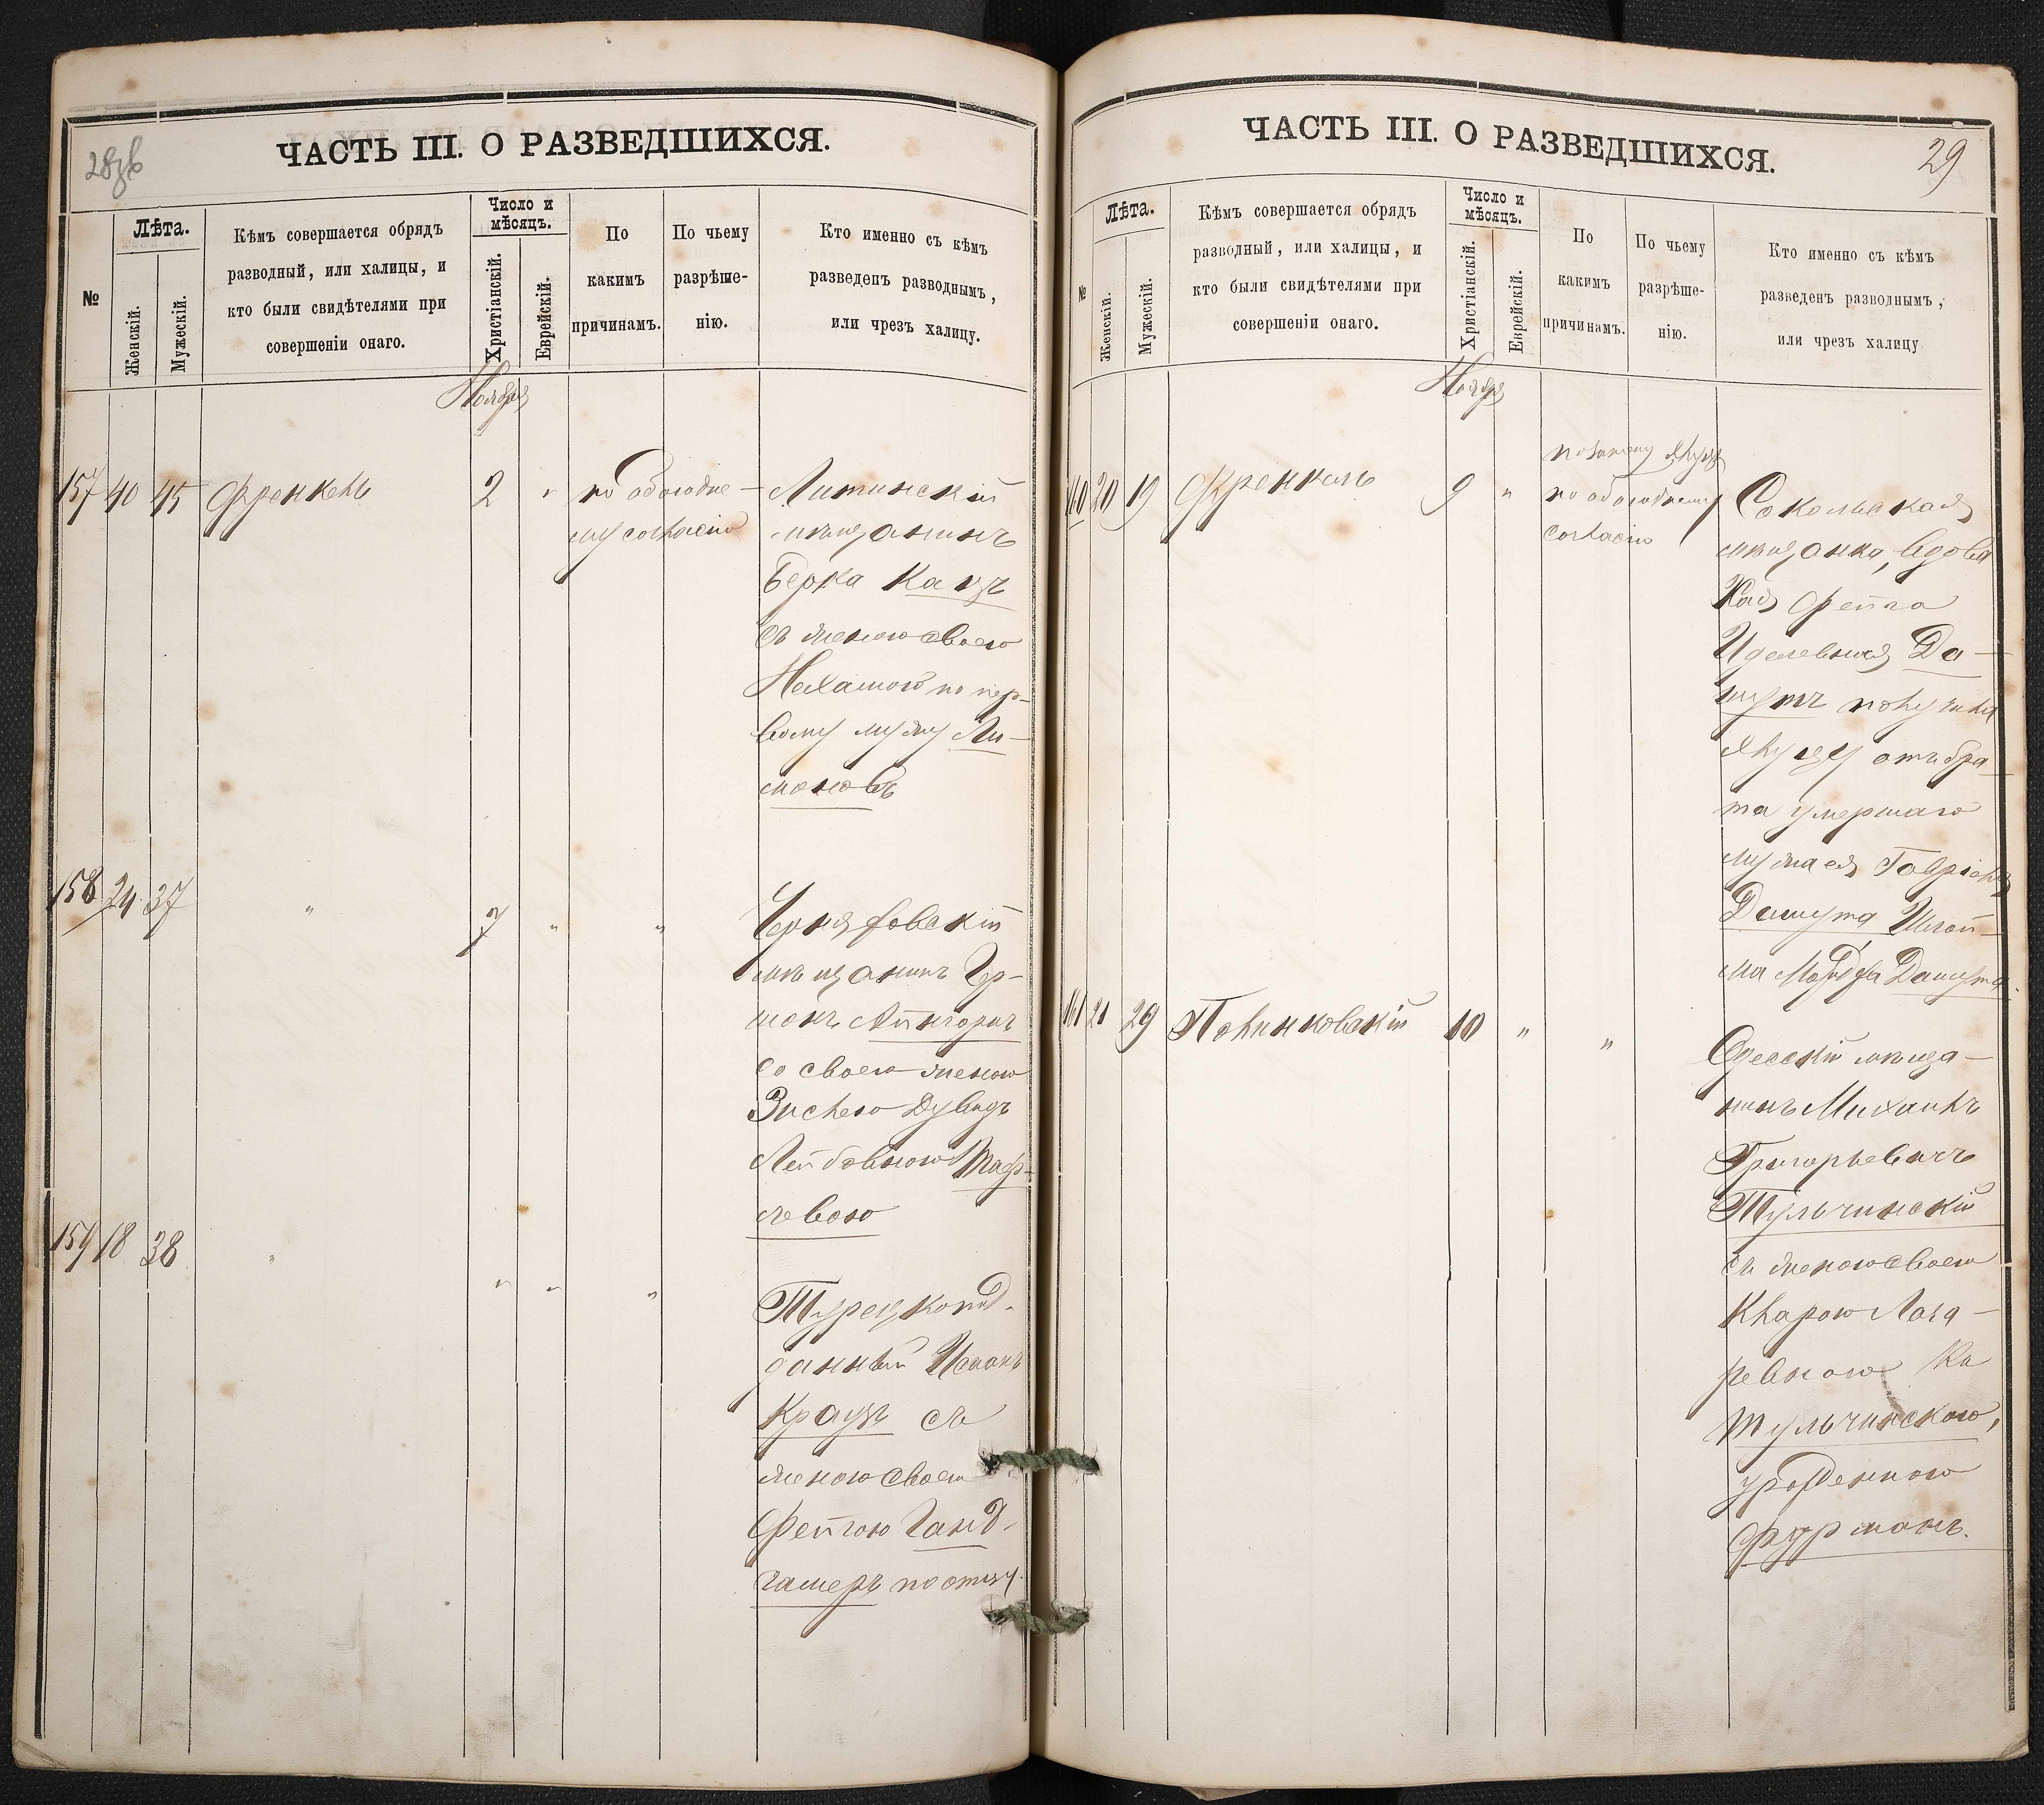 28об
ЧАСТЬ III. О РАЗВЕДШИХСЯ.
№
Лѣта.
Женскій.
Мужескій.
Кѣмъ совершается обрядъ
разводный, или халицы, и
кто были свидѣтелями при
совершеніи онаго.
Число и
мѣсяцъ.
Христіанскій.
Еврейскій.
По
какимъ
причинамъ.
По чьему
разрѣше-
нію.
Кто именно съ кѣмъ
разведенъ разводнымъ,
или чрезъ халицу.
Ноября
157 40 45 Френкель 2 "
по обоюдно-
му согласію
Литинскій
мѣщанинъ
Берка Кацъ
съ женою своею
Нехамою по пер-
вому мужу Ли-
моновъ
158 24 37 " 7 " "
Черняховскій
мѣщанинъ Гер-
шонъ Айнгорнъ
со своею женою
Зислею Дувидъ
Лейбовною
левою
159 18 38 " " " "
Турецкопод-
данный Исаакъ
Краузъ съ
женою своею
Фейгою Ганд-
гамеръ по отцу.
29
ЧАСТЬ III. О РАЗВЕДШИХСЯ.
№
Лѣта.
Женскій.
Мужескій.
Кѣмъ совершается обрядъ
разводный, или халицы, и
кто были свидѣтелями при
совершеніи онаго.
Число и
мѣсяцъ.
Христіанскій.
Еврейскій.
По
какимъ
причинамъ.
По чьему
разрѣше-
нію.
Кто именно съ кѣмъ
разведенъ разводнымъ,
или чрезъ халицу
Ноября
160 20 19 Френкель 9 "
по обоюдному
согласію
Сокольская
мѣщанка, вдова
Хая Фейга
Иделевная Да-
шутъ получила
Халуцу отъ бра-
та умершаго
мужа ея Гавріеля
Дашута
Дашута.
161 21 29 Полинковскій 10 " "
Одесскій мѣща-
нинъ Михаилъ
Григорьевичъ
Тульчинскій
съ женою своею
Кларою Лаза-
ревною
Тульчинскою,
урожденною
Фурманъ.